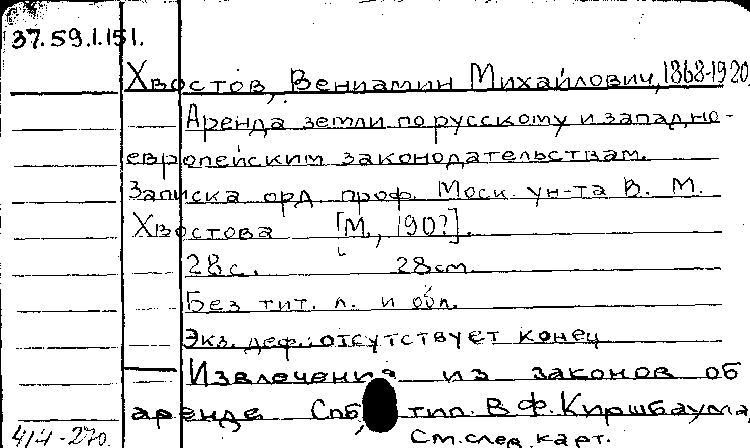 37.59.1.151.
Хвостов, Вениамин Михайлович, 1868-1920
Аренда земли по русскому и западно-
европейским законодательствам.
Записка орд. проф. Моск. ун-та В. М.
Хвостова [М., 190?].
28 с. 28 см.
Без тит. л. и обл.
Экз. деф.: отсутствует конец
Извлечения из законов об
аренде Спб, тип. В Ф. Киршбаума,
4/4-270. См. след. карт.